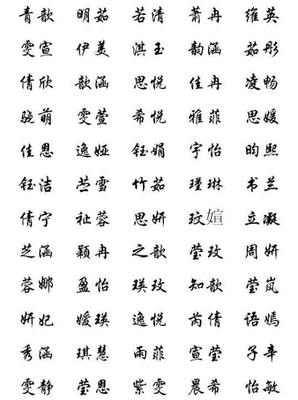 青歆 明茹 若清 萧冉 维英
雯宣 伊美 淇玉 韵涵 茹彤
倩欣 歆涵 思悦 佳冉 凌畅
骁萌 雯萱 希悦 雅菲 思媛
佳恩 逸娅 钰娟 宇怡 昀熙
钰洁 苎雪 竹茹 瑾琳 书兰
倩宁 祉蓉 思妍 玟媗 立凝
芝涵 颖冉 之歆 莹玫 周妍
蓉娜 盈怡 瑛玫 知歆 莹岚
妍妃 媛瑛 逸悦 芮倩 语嫣
秀涵 琪慧 雨菲 宣莹 子辛
雯静 莹恩 紫雯 晨希 怡敏